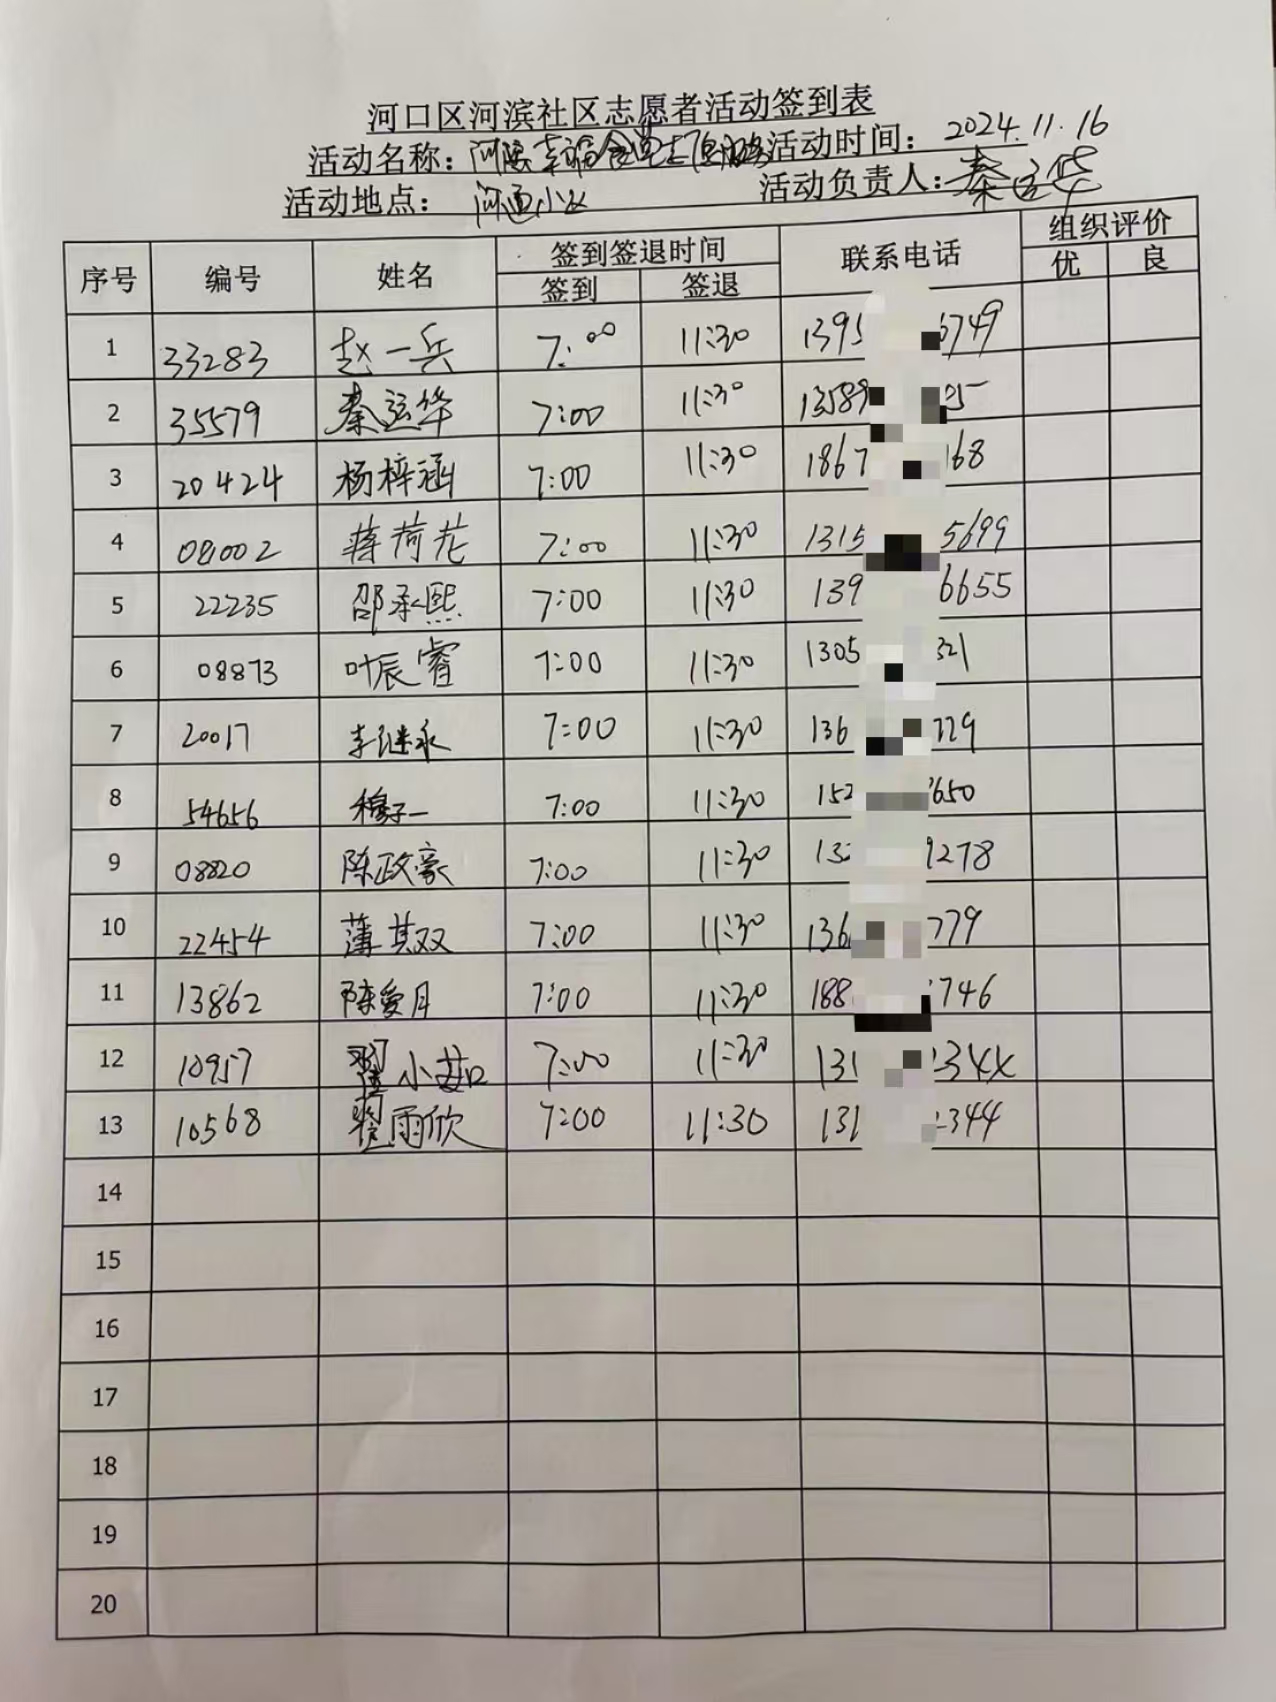 河口区河滨社区志愿者活动签到表
活动名称：河滨幸福食堂 活动时间：2024.11.16
活动地点：河通小区 活动负责人：秦运华
序号 编号 姓名 签到签退时间 联系电话 组织评价
签到 签退 优 良
1 33283 赵一兵 7:00 11:30 1395 6749
2 35579 秦运华 7:00 11:30 13589 05
3 20424 杨梓涵 7:00 11:30 1867 168
4 081002 蒋荷花 7:00 11:30 1315 5699
5 22235 邵承熙 7:00 11:30 139 6655
6 08873 叶辰睿 7:00 11:30 1305 321
7 20017 李继永 7:00 11:30 136 779
8 54656 穆子一 7:00 11:30 152 650
9 08820 陈政豪 7:00 11:30 132 9278
10 22454 薄其双 7:00 11:30 136 779
11 13862 陈爱月 7:00 11:30 188 746
12 10957 翟小茹 7:00 11:30 131 344
13 10568 翟雨欣 7:00 11:30 131 344
14
15
16
17
18
19
20